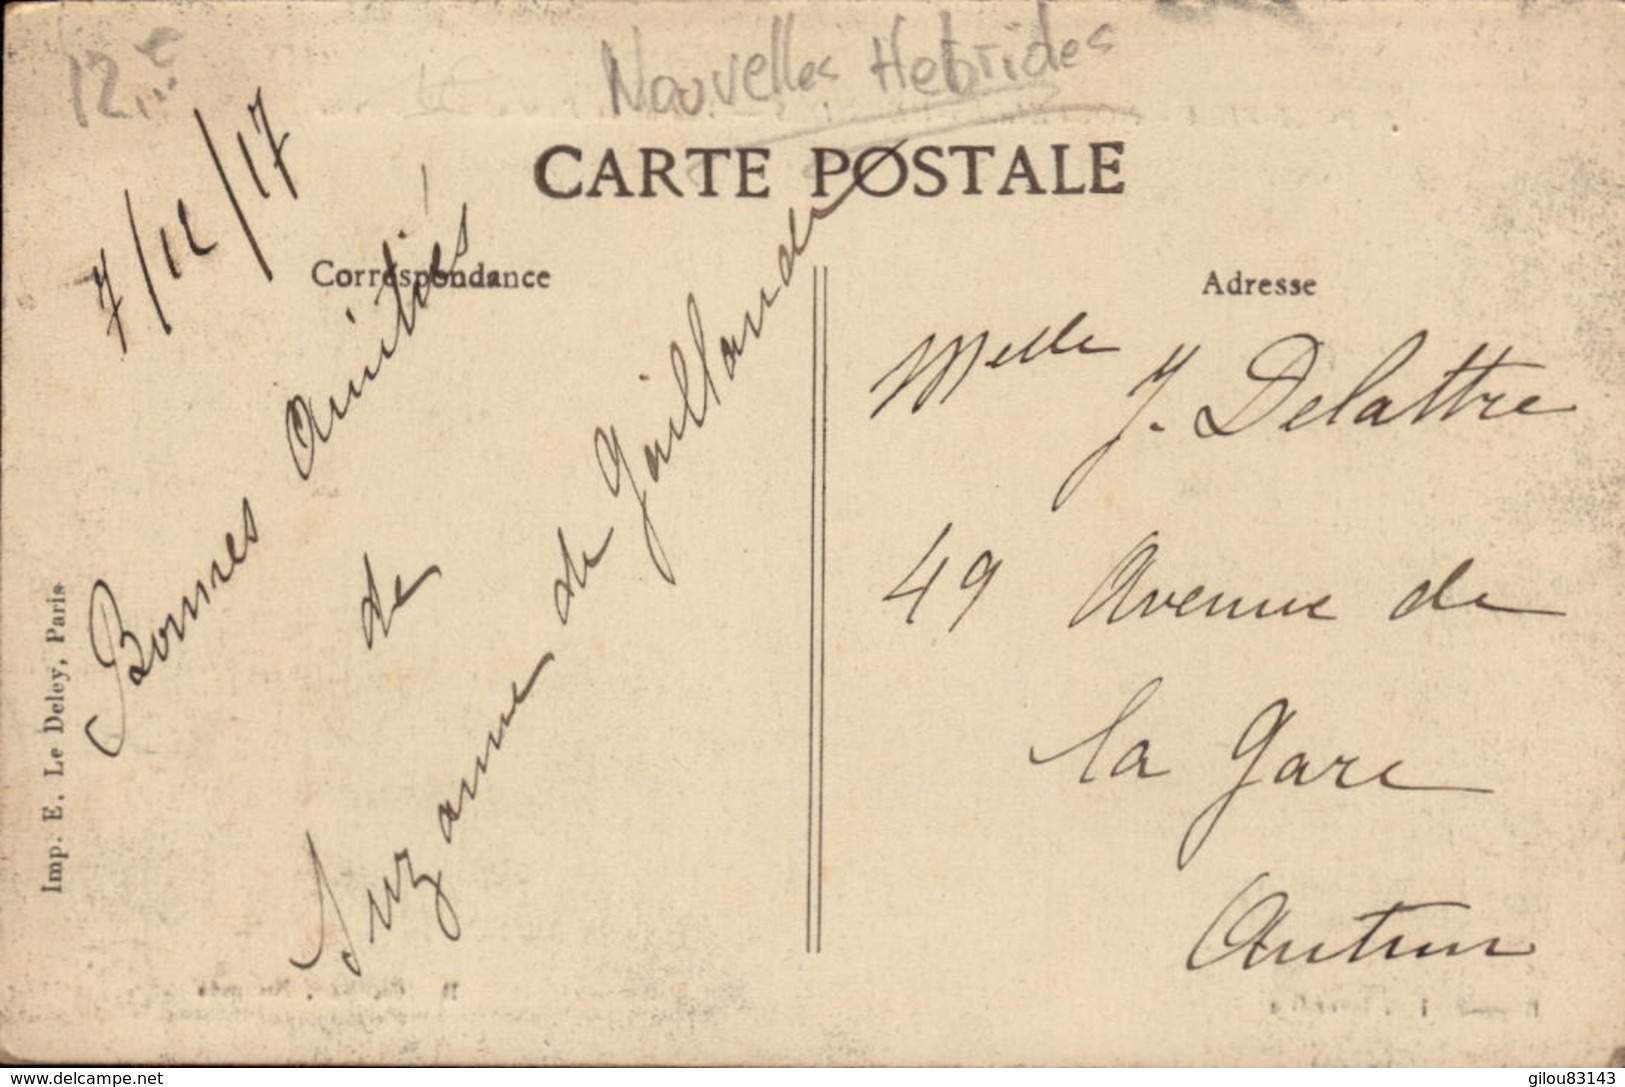 12 e
Nouvelles Hebrides
CARTE POSTALE
7/12/17
Correspondance
Bonnes Amitiés
de
Suzanne de Gaillande
Imp. E. Le Deley, Paris
Adresse
Melle
J. Delattre
49 Avenue de
la Gare
Autun
www.delcampe.net
gilou83143